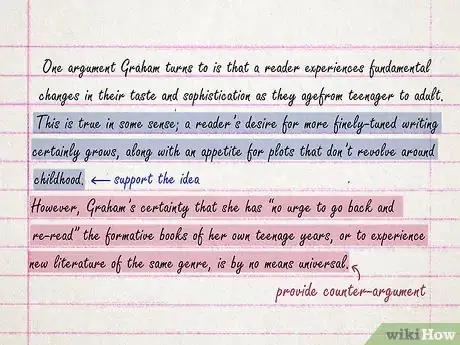 One argument Graham turns to is that a reader experiences fundamental
changes in their taste and sophistication as they agefrom teenager to adult.
This is true in some sense; a reader's desire for more finely-tuned writing
certainly grows, along with an appetite for plots that don't revolve around
childhood. ← support the idea
However, Graham's certainty that she has "no urge to go back and
re-read" the formative books of her own teenage years, or to experience
new literature of the same genre, is by no means universal.
provide counter-argument
wikiHow